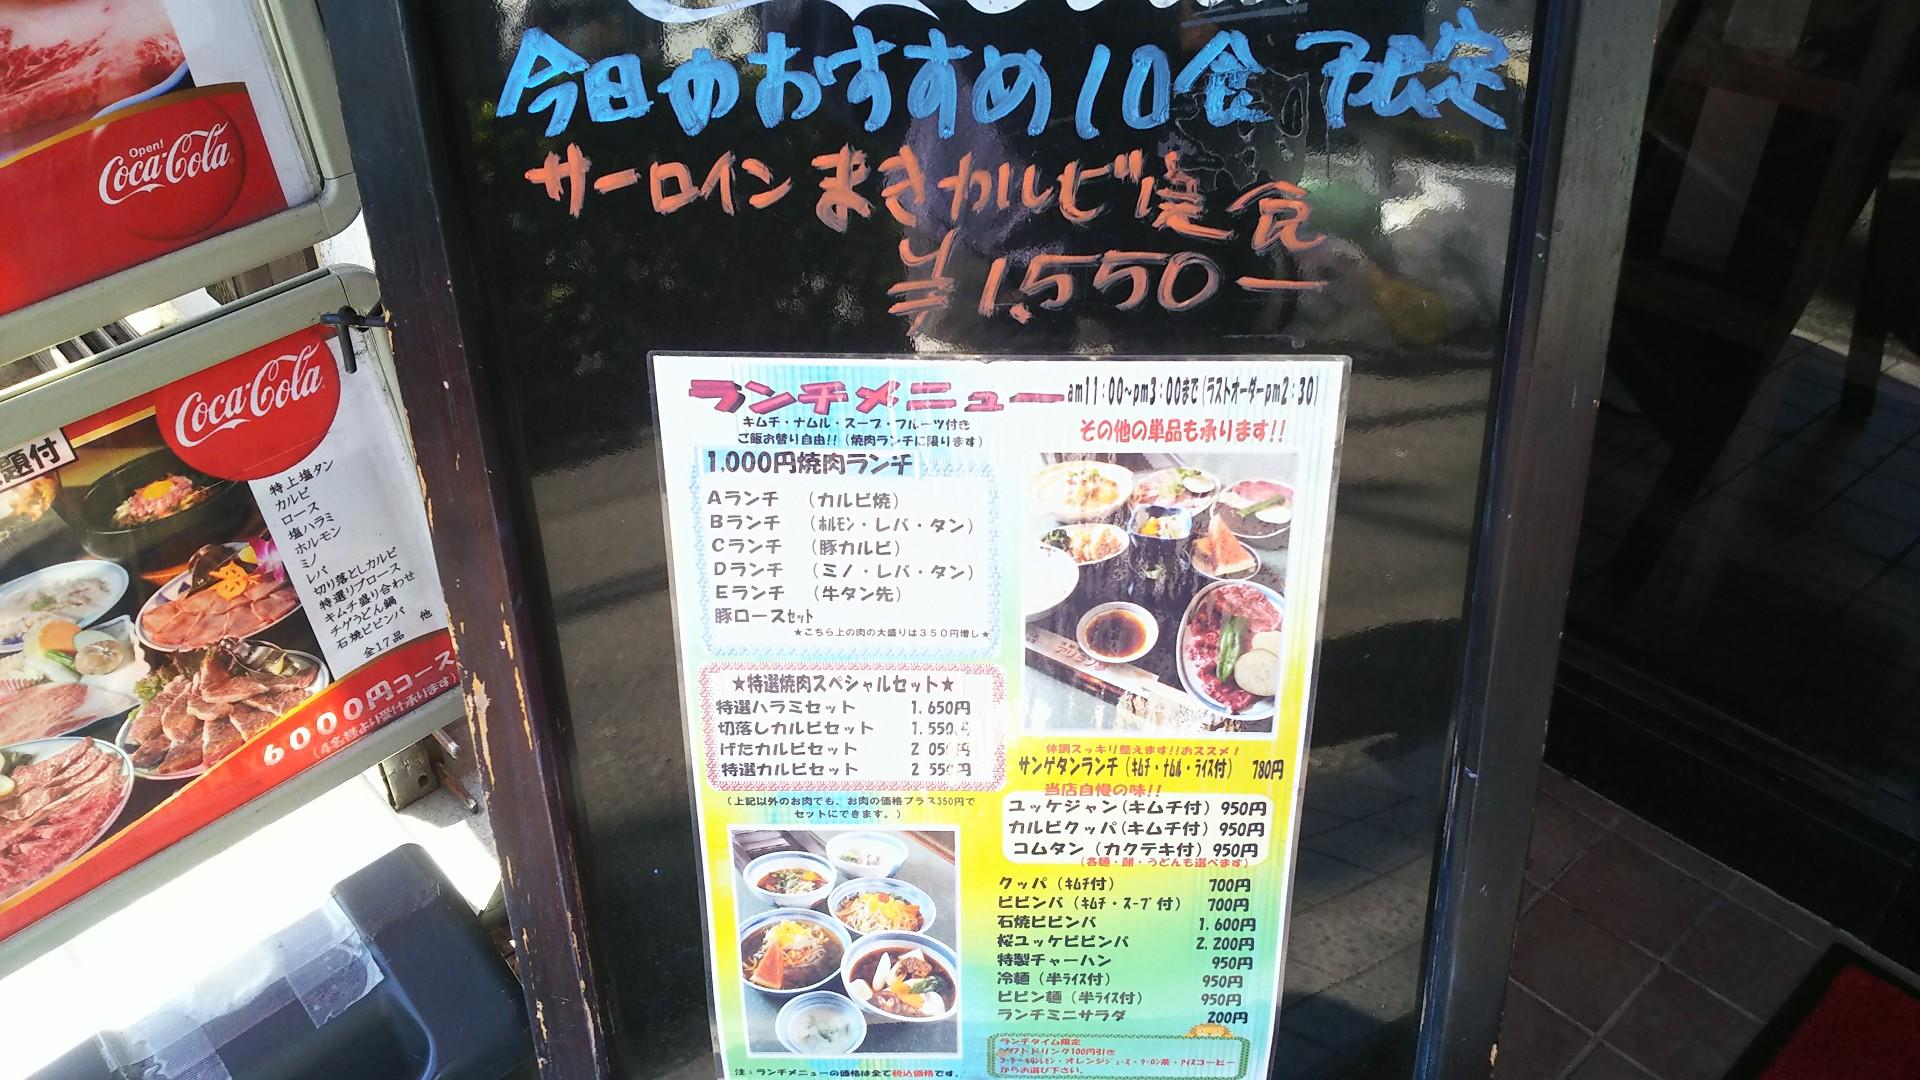 今日のおすすめ10食限定
サーロインまきカルビ定食
¥1,550ー
ランチメニュー
am11:00～pm3:00まで(ラストオーダーpm2:30)
キムチ・ナムル・スープ・フルーツ付き
ご飯お替り自由!!(焼肉ランチに限ります)
その他の単品も承ります!!
1,000円焼肉ランチ
Aランチ (カルビ焼)
Bランチ (ホルモン・レバ・タン)
Cランチ (豚カルビ)
Dランチ (ミノ・レバ・タン)
Eランチ (牛タン先)
豚ロースセット
★こちら上の肉の大盛りは350円増し★
★特選焼肉スペシャルセット★
特選ハラミセット 1.650円
切落しカルビセット 1.550円
げたカルビセット 2 050円
特選カルビセット 2 550円
(上記以外のお肉でも、お肉の価格プラス350円で
セットにできます。)
体調スッキリ整えます!!おススメ!
サンゲタンランチ(キムチ・ナムル・ライス付) 780円
当店自慢の味!!
ユッケジャン(キムチ付) 950円
カルビクッパ(キムチ付) 950円
コムタン(カクテキ付) 950円
(各麺・餅・うどんも選べます)
クッパ(キムチ付) 700円
ビビンバ(キムチ・スープ付) 700円
石焼ビビンバ 1,600円
桜ユッケビビンバ 2,200円
特製チャーハン 950円
冷麺(半ライス付) 950円
ビビン麺(半ライス付) 950円
ランチミニサラダ 200円
ランチタイム限定
ソフトドリンク100円引き
コーラ・キリンレモン・オレンジジュース・ウーロン茶・アイスコーヒー
からお選び下さい。
注:ランチメニューの価格は全て税込価格です。
Open!
Coca-Cola
Coca-Cola
題付
特上塩タン
カルビ
ロース
塩ハラミ
ホルモン
ミノ
レバ
切り落としカルビ
特選リブロース
キムチ盛り合わせ
チゲうどん鍋
石焼ビビンバ 他
全17品
6000円コース
(4名様より受け承ります)